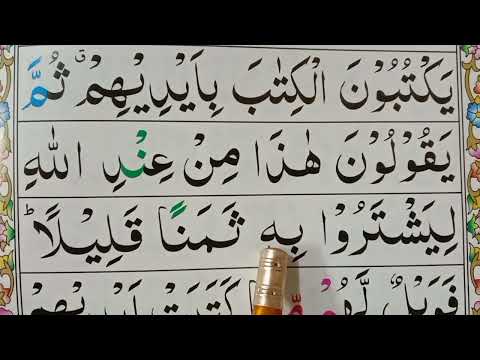 يَكْتُبُوْنَ الْكِتٰبَ بِاَيْدِيْهِمْ ۗ ثُمَّ
يَقُوْلُوْنَ هٰذَا مِنْ عِنْدِ اللّٰهِ
لِيَشْتَرُوْا بِهٖ ثَمَنًا قَلِيْلًا ؕ
فَوَيْلٌ لَّهُمْ مِّمَّا كَتَبَتْ اَيْدِيْهِمْ